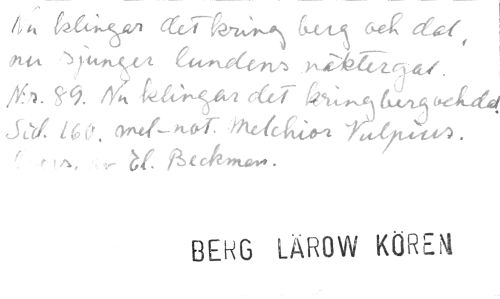 Nu klingar det kring berg och dal,
nu sjunger lundens näktergal.
Nr. 89. Nu klingar det kring berg och dal
Sid. 160. mel-not. Melchior Vulpius.
av El. Beckman.
BERG LÄROW KÖREN